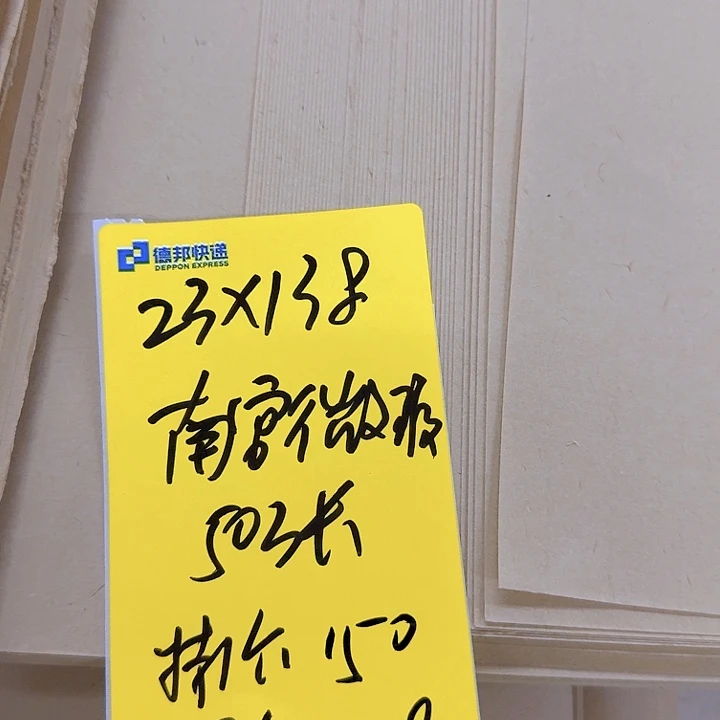 德邦快递
DEPPON EXPRESS
23×138
南宫微报
50张
掛尔 150